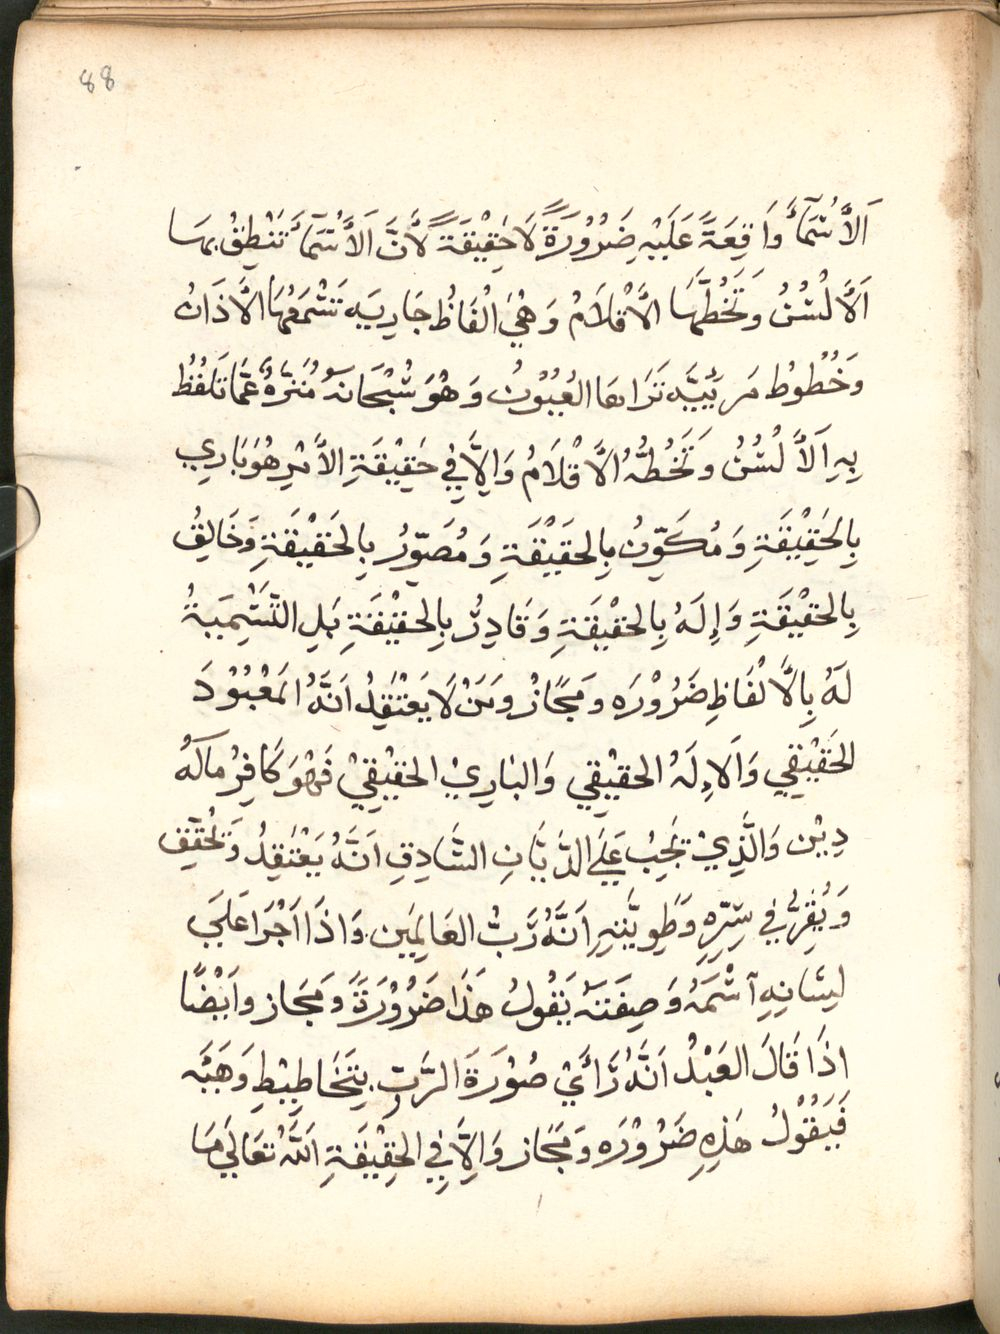 88
اَلاَّسْمَآءُ وَاقِعَةً عَلَيْهِ ضَرُوْرَةً لَا حَقِيْقَةً لَأَنَّ اَلأَسْمَآءَ تَنْطِقُ بهَا
اَلاَّلْسُنُ وَتَخُطُّهَا الاَّقْلَامُ وَهْيَ الْفَاظُ جَارِيَه تَسْمَعُهَا الاَّذَانُ
وَخُطُوطُ مَرئِيَّه تَرَاهَا العُيُوْنُ وَهْوَ سُبْحَانَهُ مُنَزَّهٌ عَمَّا تَلفُظُ
بِهِ اَلاَّلْسُنُ وَتَخُطُّهُ الاَّقْلَامُ وَاِلاَّ فِي حَقِيْقَةِ الاَّمْرِ هُوَ بَارِي
بِالحَقِيْقَةِ وَمُكَوِّنُ بِالحَقِيْقَةِ وَمُصَوِّرُ بِالحَقِيْقَةِ وَخَالِقُ
بِالحقِيْقَةِ وَإِلَهُ بِالحقِيْقَةِ وَقَادِرُ بِالحقِيْقَةِ بَلِ التَّسْمِيَةُ
لَهُ بِالاَّلْفَاظِ ضَرُوْرَه ومَجَازْ ومَنْ لَا يَعْتَقِدُ اَنَّهُ المَعْبُوْدَ
الحَقِيْقِي وَالاِلَهُ الحقِيْقِي وَالبَارِيْ الحقِيْقِيْ فَهْوَ كَافِرْ مالَهُ
دِيْن وَالَّذِيْ يَجِبُ عَلَي الدَّيَّانِ الصَّادِقِ اَنَّهُ يَعْتَقِدُ وَيُحَقِّقِ
وَيُقِرُّ فِي سِرِّهِ وَطَوِيَّتِهِ اَنَّهُ رَبُّ العَالَمِين. وَاذَا اَجْرَا عَلَي
لِسَانِهِ آسْمَهُ وَصِفَتَهُ يَقُولُ هَذَا ضَرُوْرَةً ومَجَاز واَيْضًا
اذَا قَالَ العَبْدُ اَنَّهُ رَأَيْ صُوْرَةَ الرَّبِ. بِتَخَاطِيْطِ وَهَيْئَه
فَيَقُوْلُ هَذِهِ ضَرُوْرَه وَمَجَاز وَاِلاَّ فِي الحَقِيْقَةِ اَللَّهُ تعَالَي مَا